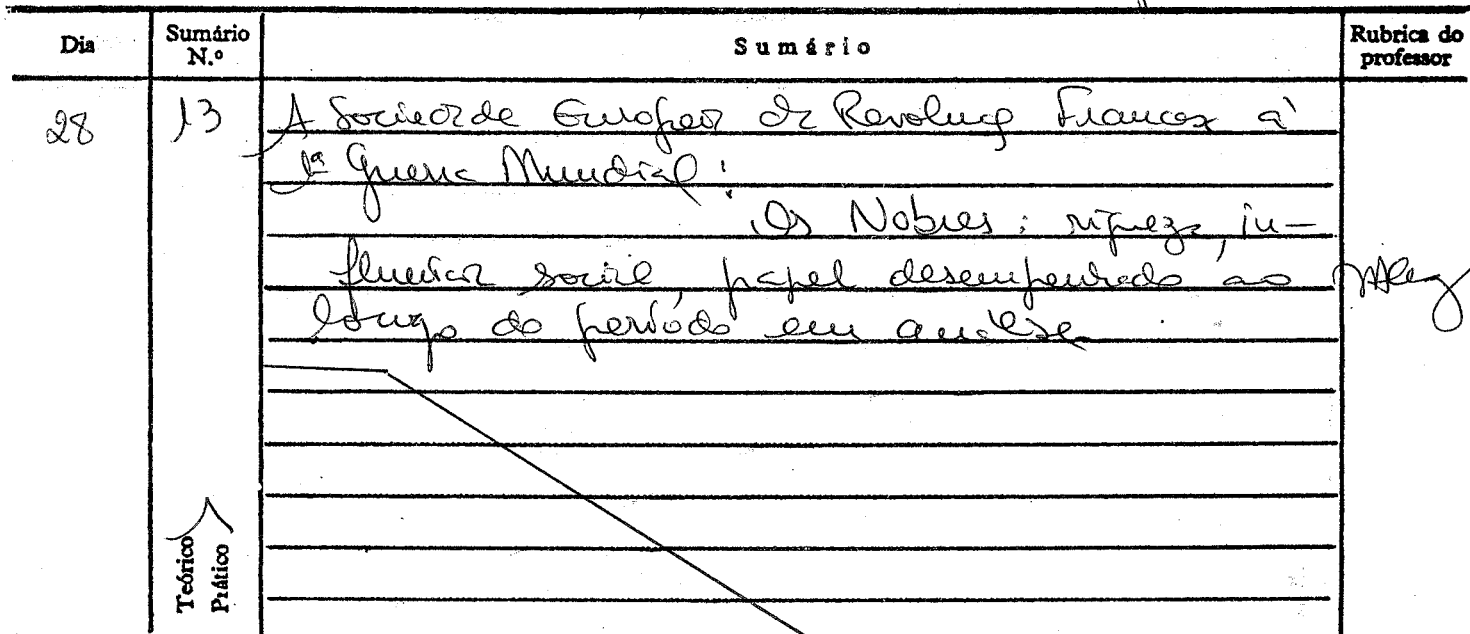 Dia Sumário N.º Sumário Rubrica do professor
28 13 A Sociedade Europeia da Revolução Francesa à
1ª Guerra Mundial:
Os Nobres: riqueza, in-
fluência social, papel desempenhado ao
longo do período em análise
Teórico
Prático